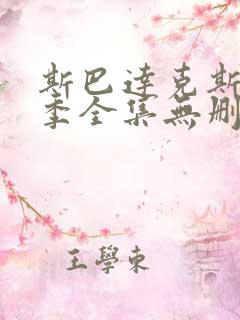 斯巴達克斯
季全集無刪
王學東